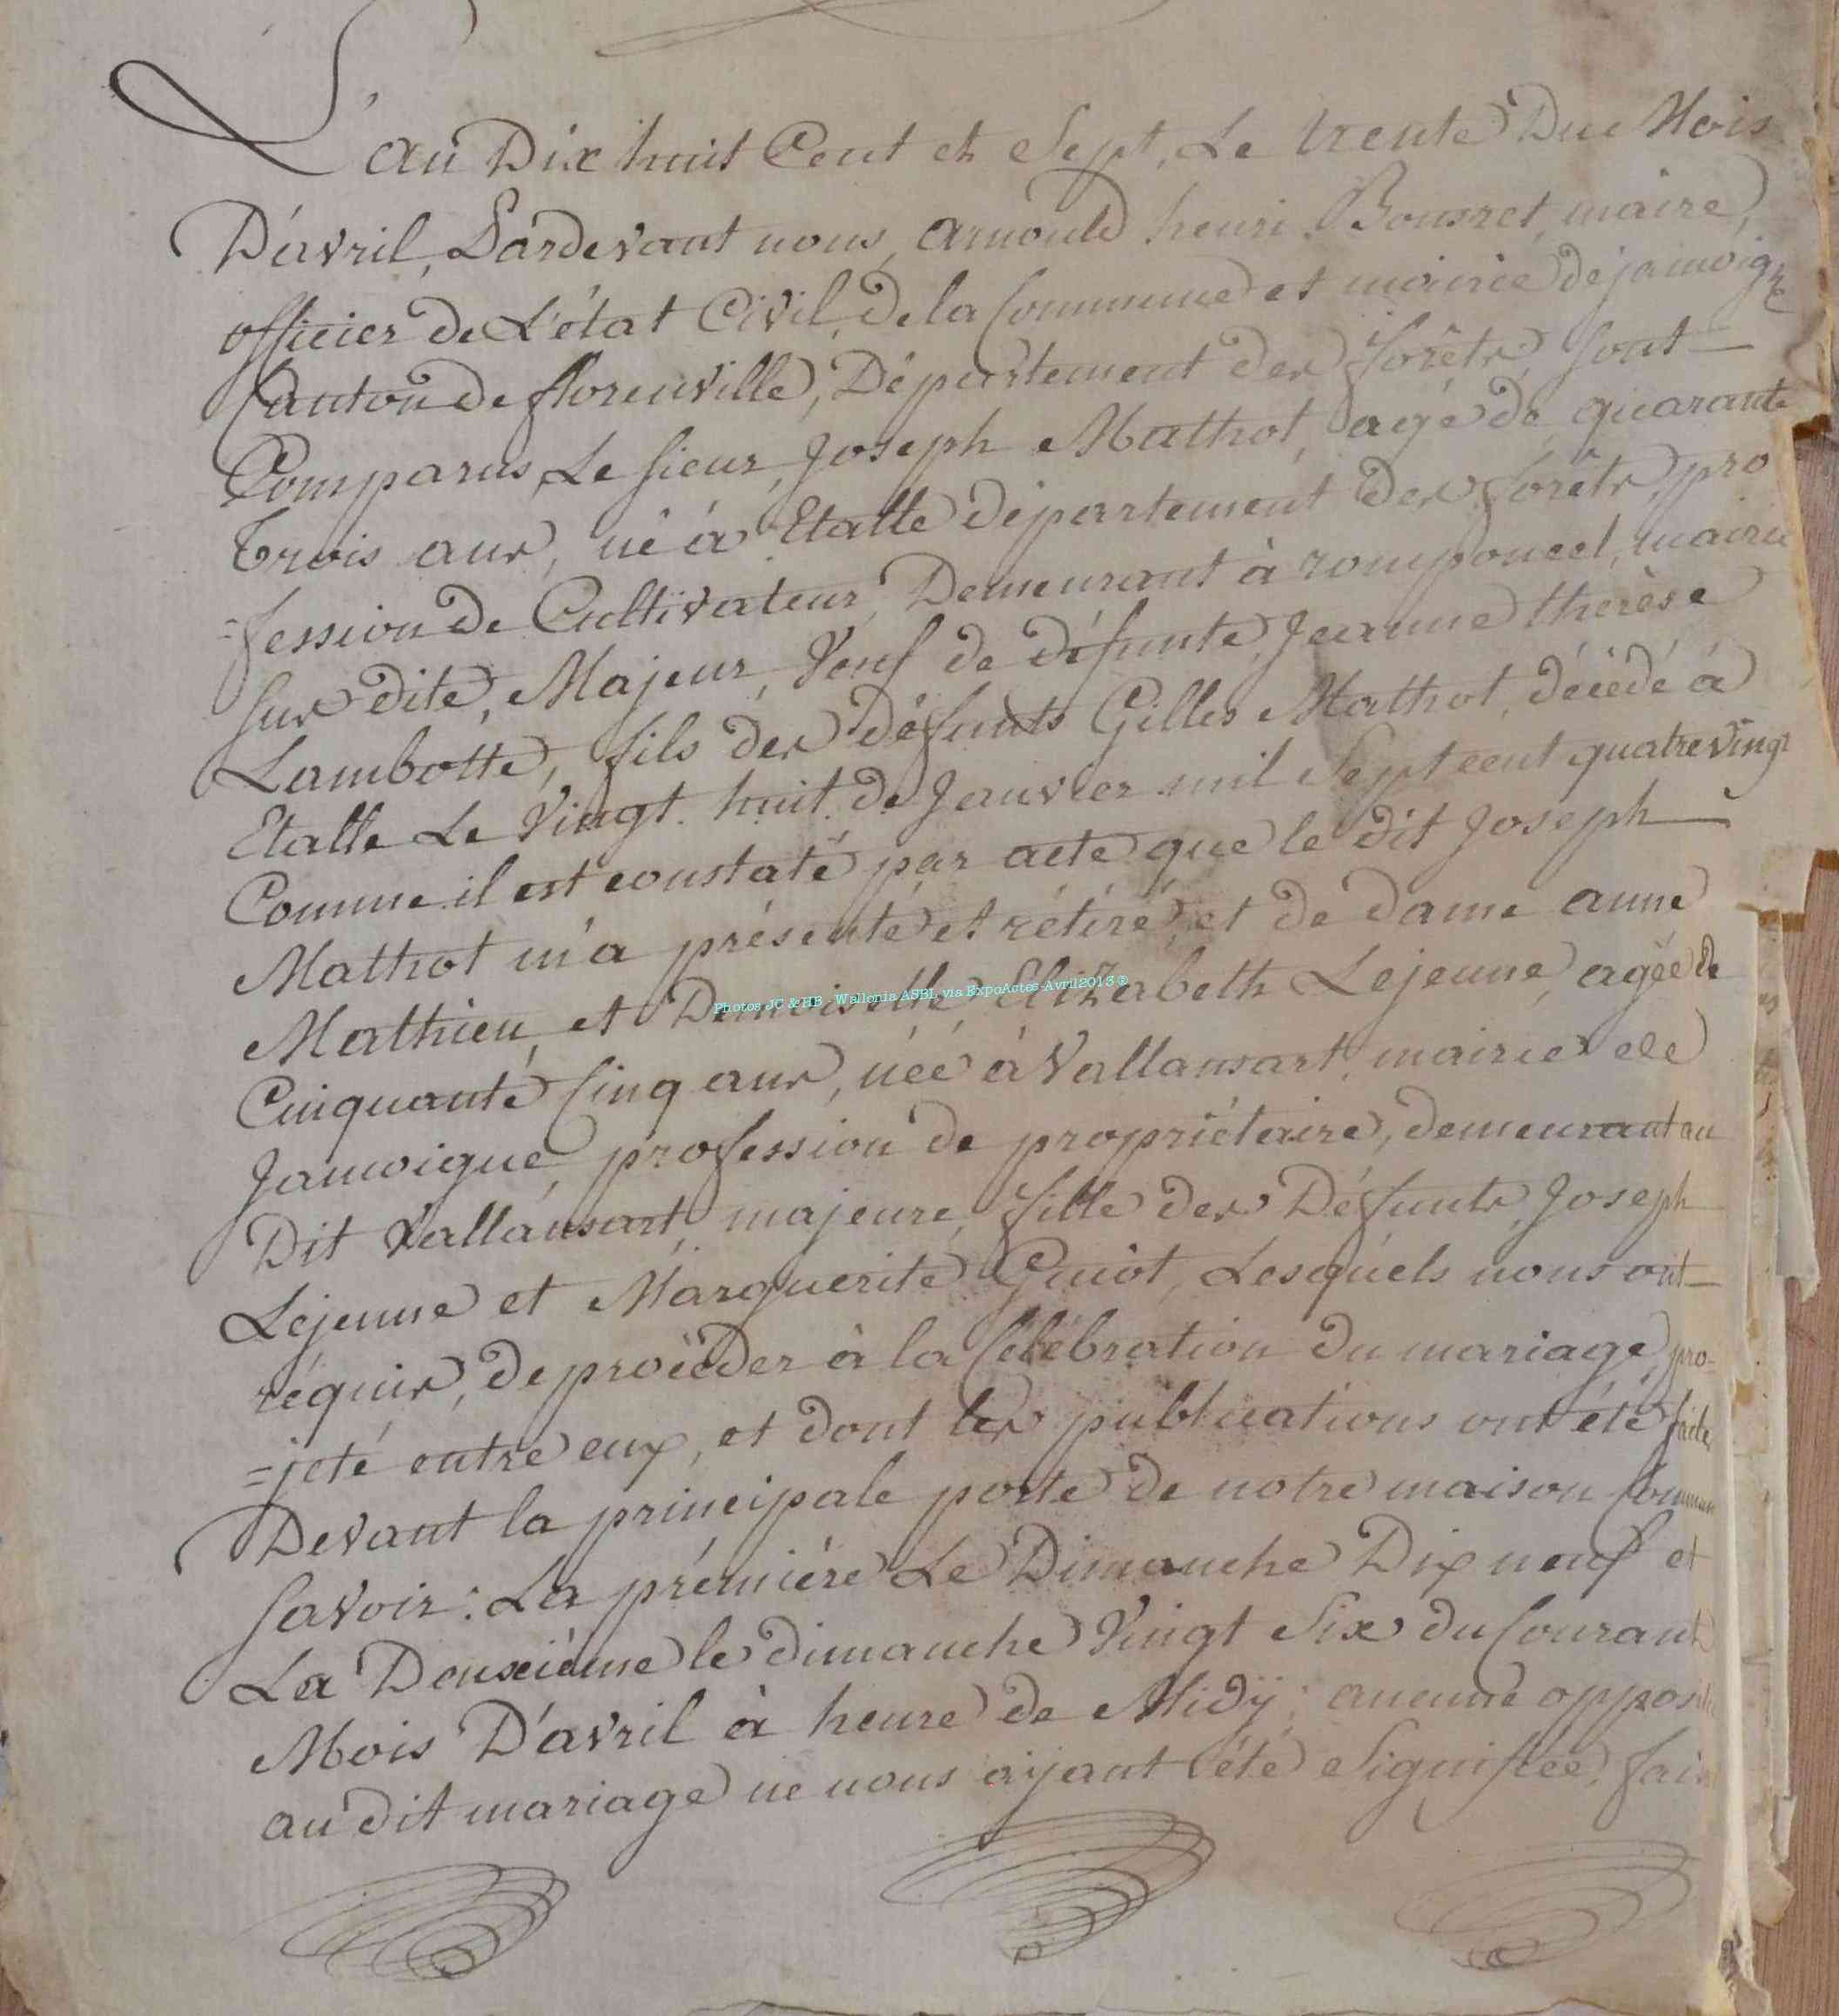 L'an Dix huit Cent et Sept, Le trente Du Mois
D'avril, Pardevant nous, arnould henri Bonsret, maire,
officier de L'état Civil, de la Commune et mairie de jamoigne
Canton de florenville, Département des forêts, sont
Comparus, Le sieur, Joseph Mathot, agé de quarante
trois ans, né à Etalle département des forêts, pro
=fession de Cultivateur, Demeurant à romponcel, mairie
sus dite, Majeur, Veuf de défunte, Jeanne thérèse
Lambotte, fils des défunts Gilles Mathot, décédé à
Etalle Le Vingt huit de Janvier mil Sept cent quatre vingt
Comme il est constaté par acte que le dit Joseph
Mathot m'a présenté et rétiré, et de dame anne
Mathieu, et Demoiselle Elizabeth Lejeune, agée de
Photos JC & HB - Wallonia ASBL via ExpoActes-Avril2013 ©
Cinquante Cinq ans, née à Vallansart, mairie de
Jamoigne, profession de propriétaire, demeurant au
Dit Vallansart, majeure, fille des Défunts, Joseph
Lejeune et Marguerite Guiot, Lesquels nous ont
réquis, de procéder à la Célébration du mariage, pro-
=jeté entre eux, et dont les publications ont été faites
Devant la principale porte de notre maison Commune
Savoir: La prémière Le Dimanche Dix neuf et
La Deuxième le dimanche Vingt Six du Courant
Mois D'avril à heure de Midÿ; aucune
au dit mariage ne nous aÿant été Signifiée,